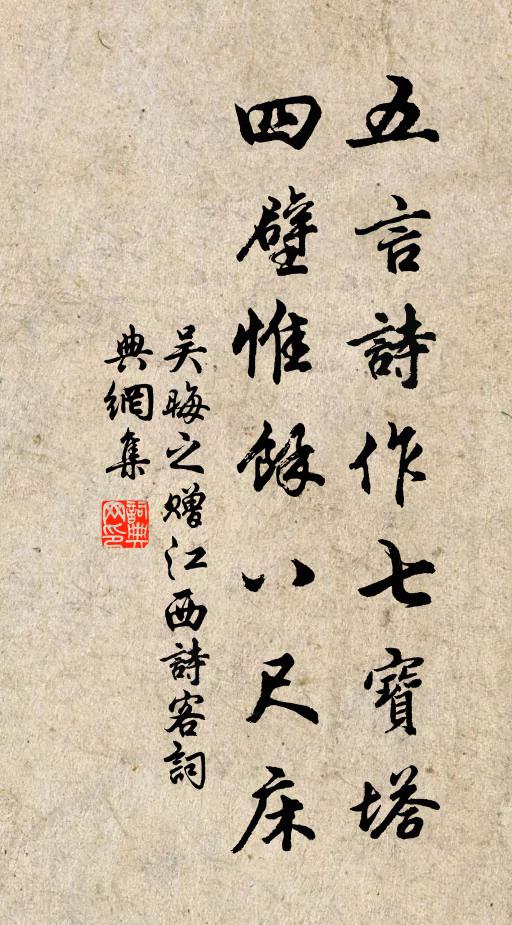 五言詩作七寶塔
四壁惟餘八尺床
吴晦之赠江西詩客詞
典網集
詞典
网印